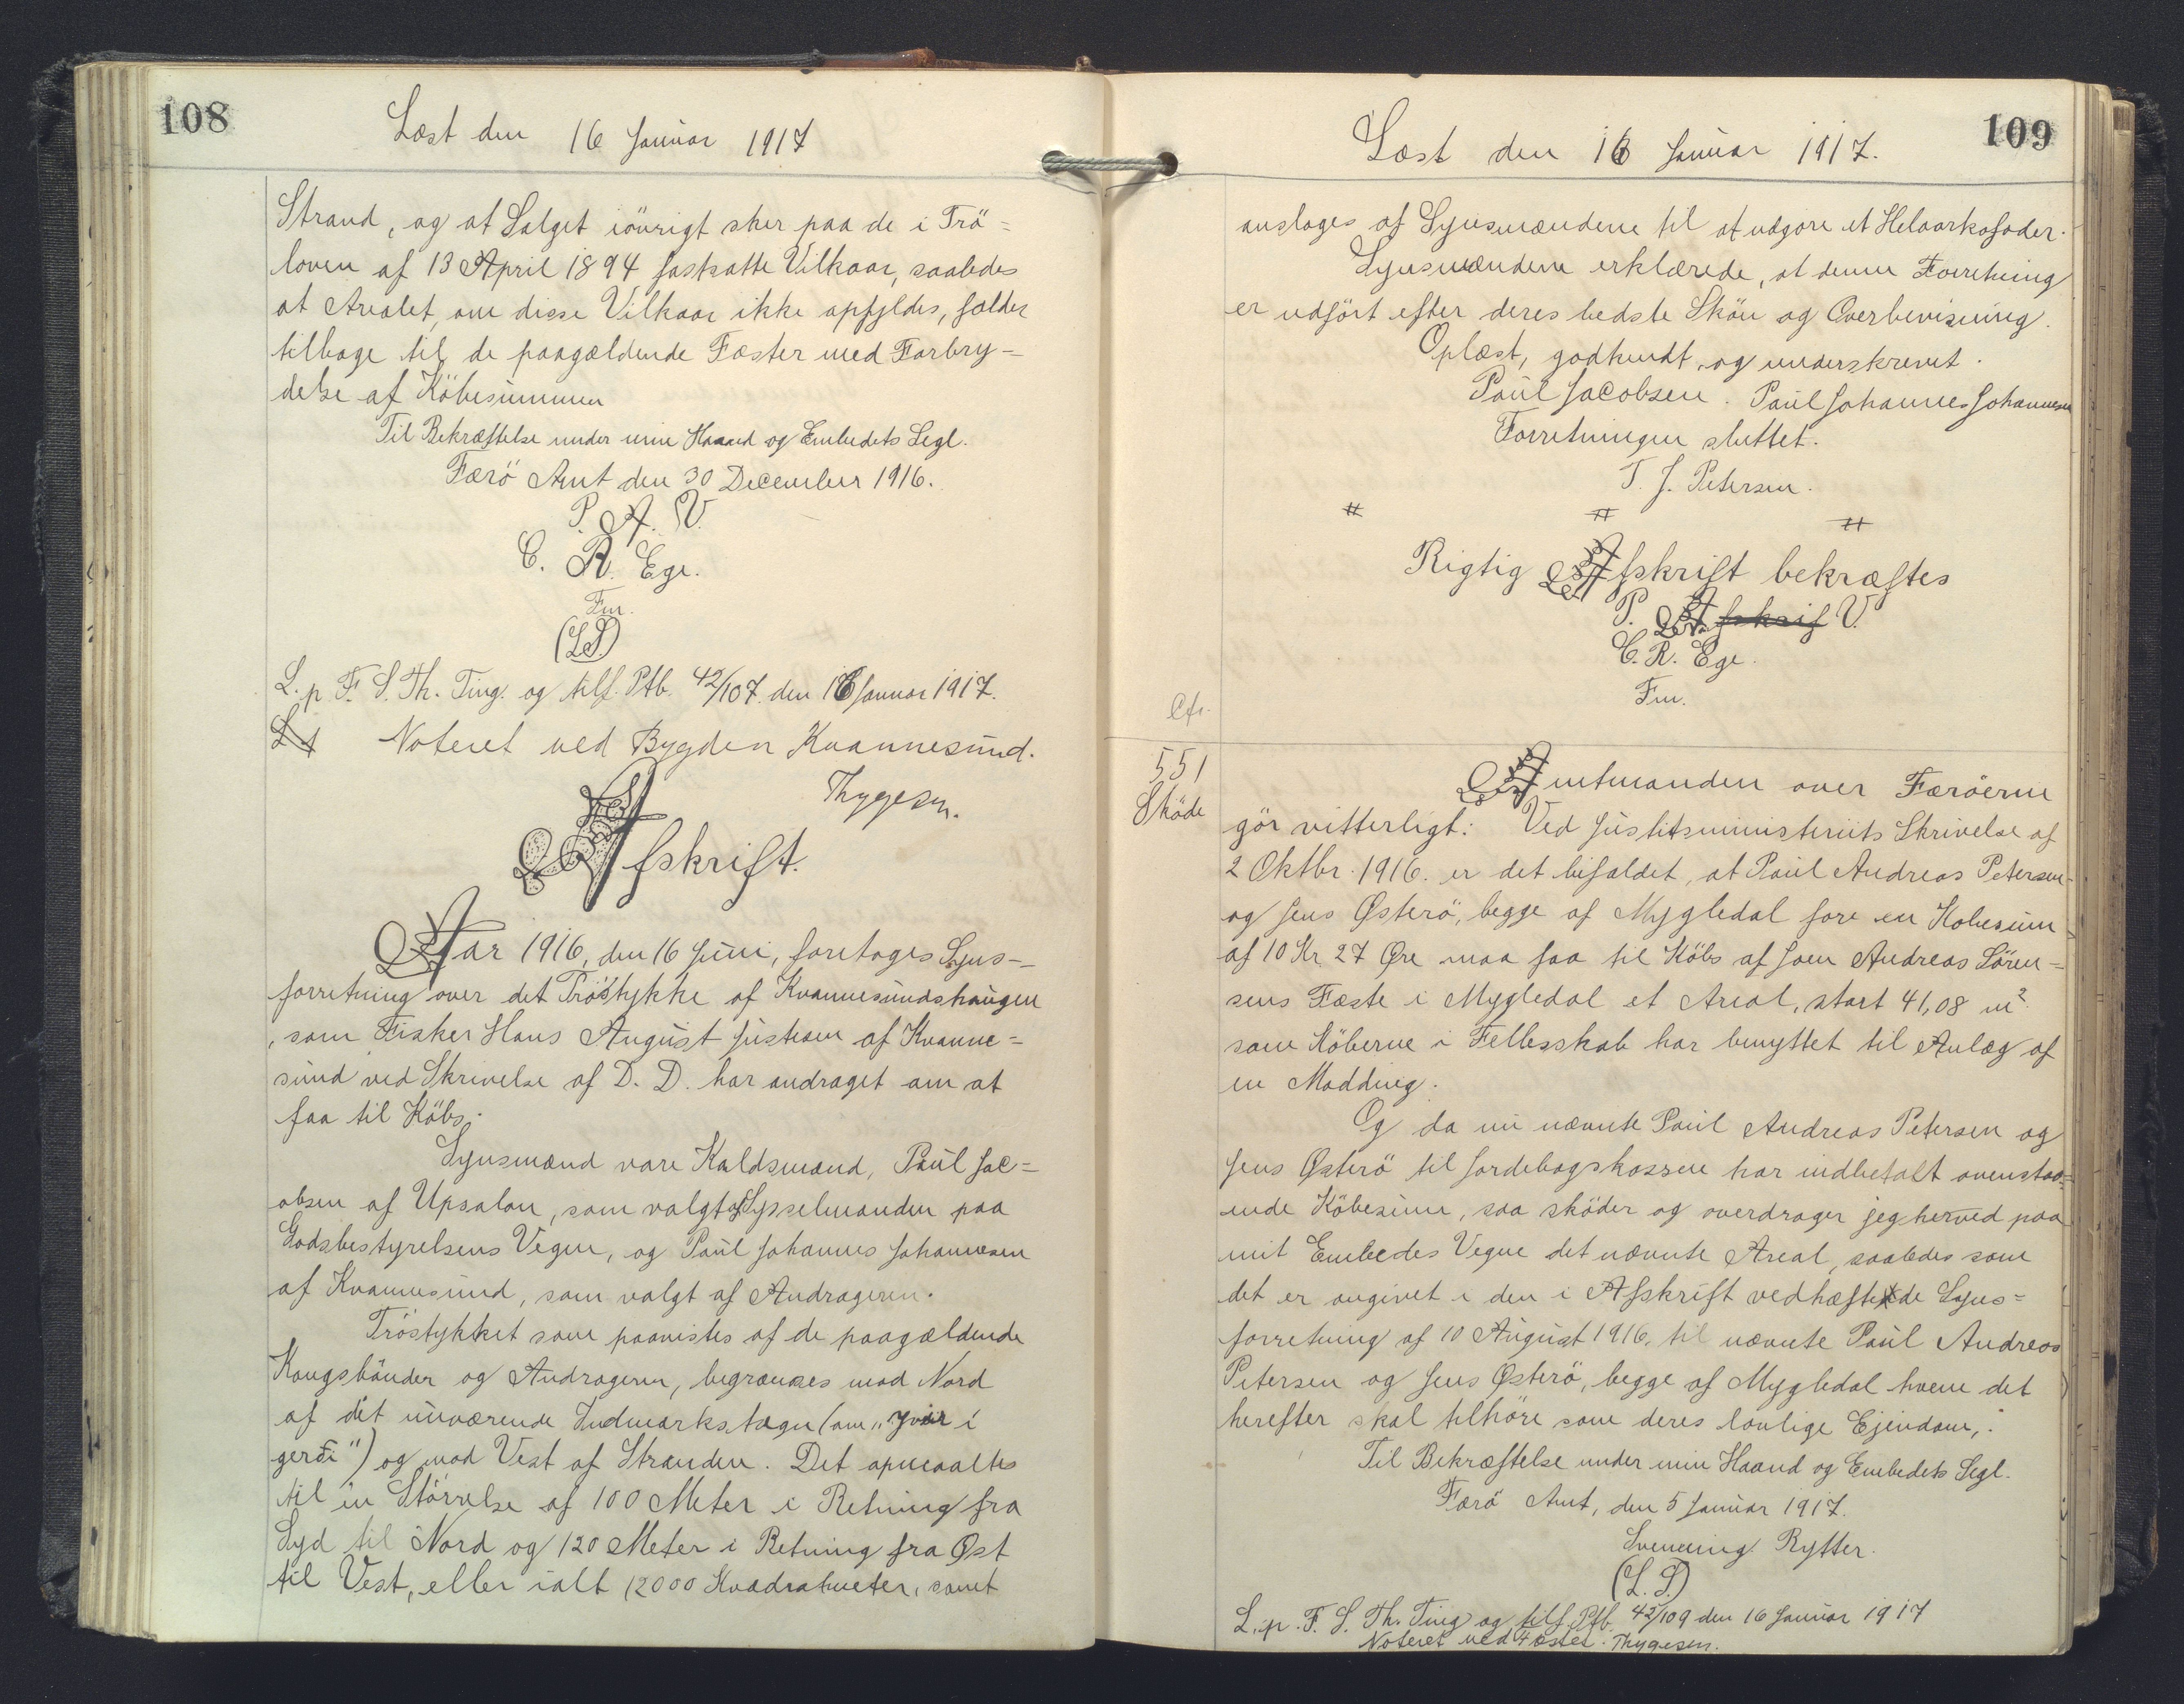 108
Læst den 16 Januar 1917
Strand, og at Salget iövrigt sker paa de i Trö=
loven af 13 April 1894 fastsatte Vilkaar, saaledes
at Arealet, om disse Vilkaar ikke opfyldes, falder
tilbage til de paagældende Fæster med Forbry=
delse af Köbesummen
Til Bekræftelse under min Haand og Embedets Segl.
Færö Amt den 30 December 1916.
P. A. V.
C. R. Ege.
Fm.
(L.S.)
L. p. F. S. Th. Ting. og tilf. Ptb. 42/107. den 16 Januar 1917.
Noteret ved Bygden Kvannesund.
Thygesen.
Afskrift.
Aar 1916, den 16 Juni, foretoges Syns-
forretning over det Tröstykke af Kvannesundshaugen
, som Fisker Hans August Justesen af Kvanne=
sund ved Skrivelse af D. D. har andraget om at
faa til Köbs.
Synsmænd vare Kaldsmænd, Paul Jac=
obsen af Upsalon, som valgt af Sysselmanden paa
Godsbestyrelsens Vegne, og Paul Johannes Johannesen
af Kvannesund, som valgt af Andrageren.
Tröstykket som paavistes af de paagældende
Kongsbönder og Andrageren, begrænses mod Nord
af det nuværende Indmarkshegn (om „Yvir í
gerði") og mod Vest af Stranden. Det opmaaltes
til en Störrelse af 100 Meter i Retning fra
Syd til Nord og 120 Meter i Retning fra Øst
til Vest, eller ialt 12000 Kvadratmeter, samt
109
Læst den 16 Januar 1917.
ansloges af Synsmændene til at udgøre et Helaarkofoder.
Synsmændene erklærede, at denne Forretning
er udfört efter deres bedste Skön og Overbevisning.
Oplæst, godkendt, og underskrevet.
Paul Jacobsen. Paul Johannes Johannesen
Forretningen sluttet.
T. J. Petersen.
# # #
Rigtig Afskrift bekræftes
P. A. fskrif V.
C. R. Ege.
Fm.
Cfr.
551
Sköde
Amtmanden over Færöerne
gör vitterligt: Ved Justitsministeriets Skrivelse af
2 Oktbr. 1916. er det bifaldet, at Paul Andreas Petersen
og Jens Østerö, begge af Mygledal fore en Kobesum
af 10 Kr 27 Øre maa faa til Köbs af Joen Andreas Sören=
sens Fæste i Mygledal et Areal, stort 41,08 m²
som Köberne i Fellesskab har benyttet til Anlæg af
en Mødding.
Og da nu nævnte Paul Andreas Petersen og
Jens Østerö til Jordebogskassen har indbetalt ovenstaa=
ende Köbesum, saa sköder og overdrager jeg herved paa
mit Embedes Vegne det nævnte Areal, saaledes som
det er angivet i den i Afskrift vedhæftede Syns=
forretning af 10 August 1916. til nævnte Paul Andreas
Petersen og Jens Østerö, begge af Mygledal hvem det
herefter skal tilhöre som deres lovlige Ejendom,.
Til Bekræftelse under min Haand og Embedets Segl.
Færö Amt, den 5 Januar 1917.
Svenning Rytter.
(L. S.)
L. p. F. S. Th. Ting og tilf. Ptb. 42/109 den 16 Januar 1917
Noteret ved Fæstet. Thygesen.